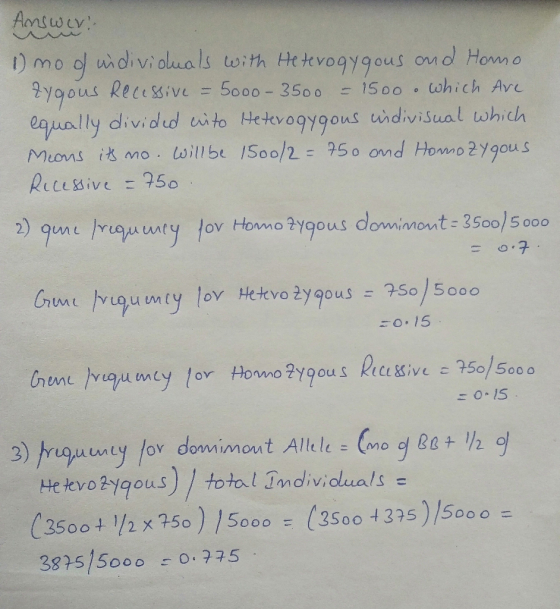 Answer:-
1) no of individuals with Heterogygous and Homo
zygous Recessive = 5000 - 3500 = 1500 . which Are
equally divided into Heterogygous indivisual which
Means its no. will be 1500/2 = 750 and Homozygous
Recessive = 750.
2) gene frequency for Homozygous dominant = 3500/5000
= 0.7
Gene frequency for Heterozygous = 750/5000
= 0.15
Gene frequency for Homozygous Recessive = 750/5000
= 0.15
3) frequency for dominant Allele = (no of BB + 1/2 of
Heterozygous) / total Individuals =
(3500 + 1/2 x 750) / 5000 = (3500 + 375) / 5000 =
3875/5000 = 0.775.